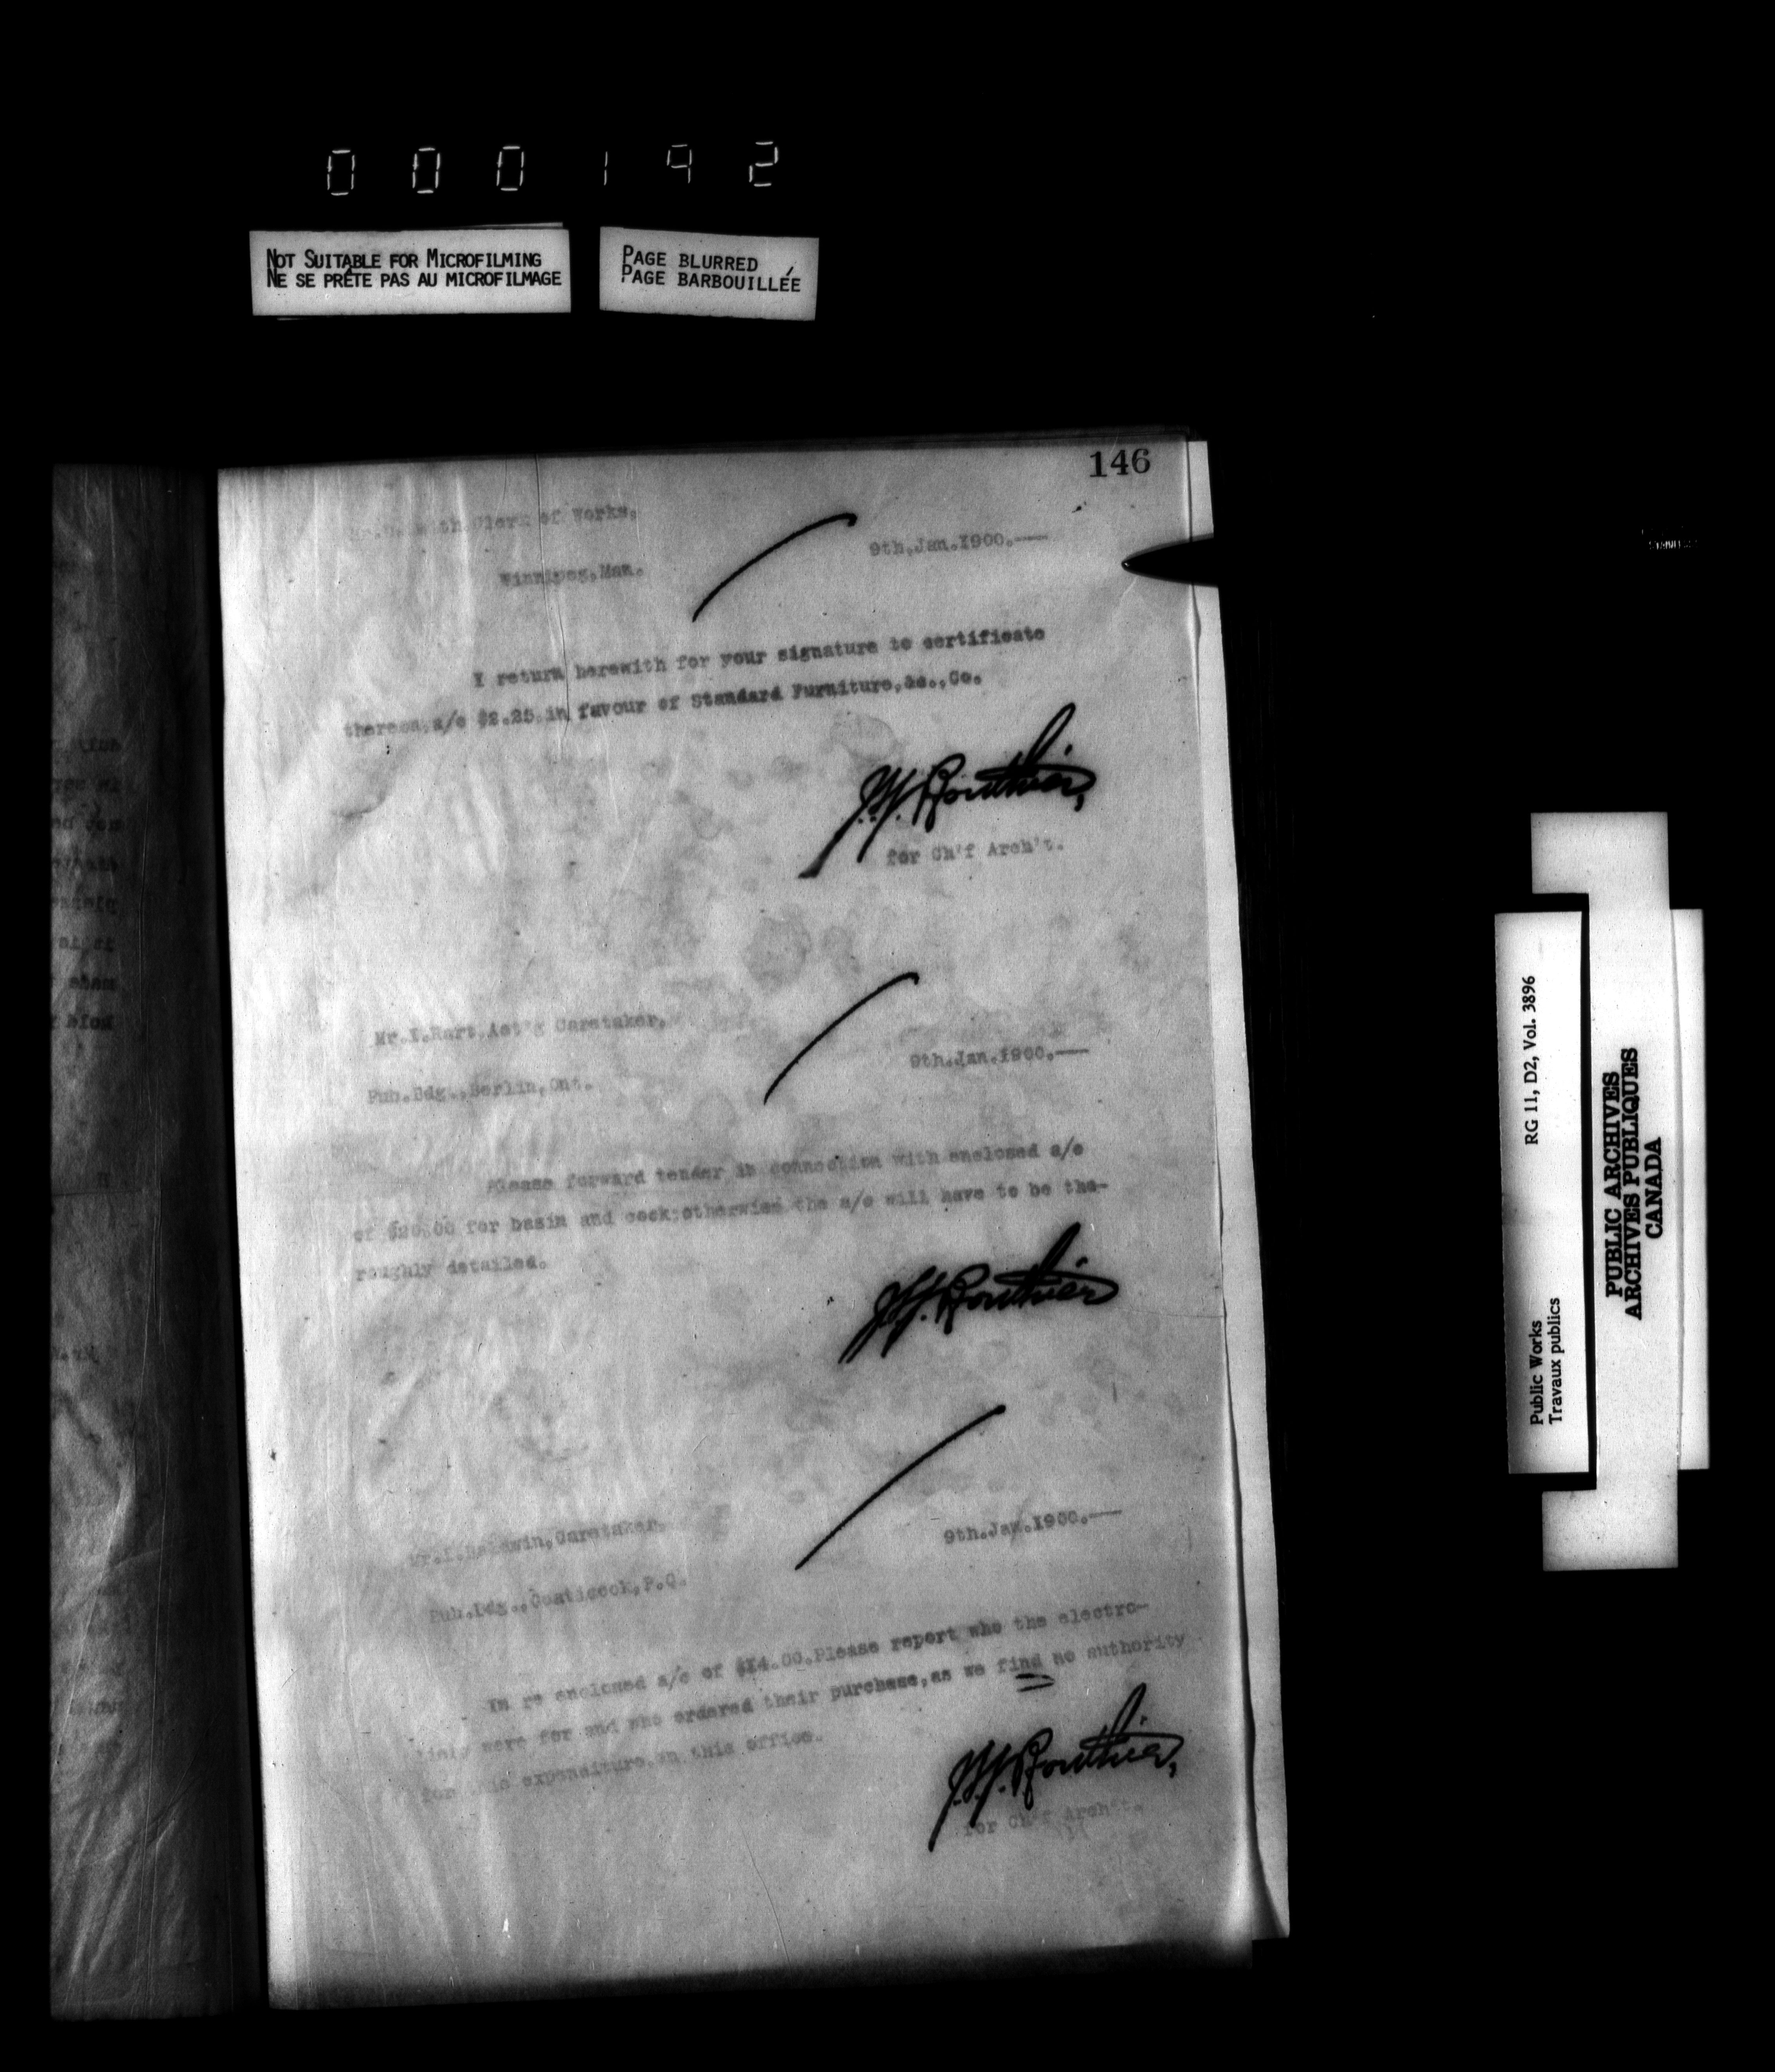 000192
NOT SUITABLE FOR MICROFILMING
NE SE PRÊTE PAS AU MICROFILMAGE
PAGE BLURRED
PAGE BARBOUILLÉE
146
Clerk of Works,
9th.Jan.1900.—
Winnipeg,Man.
I return herewith for your signature to certificate
thereon,a/c $2.25,in favour of Standard Furniture,&c.,Co.
for Ch'f Arch't.
Act'g Caretaker,
9th.Jan.1900.—
Pub.Bdg.,Berlin,Ont.
Please forward tender in connection with enclosed a/c
of $20.00 for basin and cock;otherwise the a/c will have to be tho-
roughly detailed.
Mr. Baldwin,Caretaker,
9th.Jan.1900.—
Pub.Bdg.,Coaticook,P.Q.
In re enclosed a/c of $14.00.Please report who the electro-
were for and who ordered their purchase,as we find no authority
for this expenditure in this office.
for Ch'f Arch't.
Public Works
Travaux publics
RG 11, D2, Vol. 3896
PUBLIC ARCHIVES
ARCHIVES PUBLIQUES
CANADA